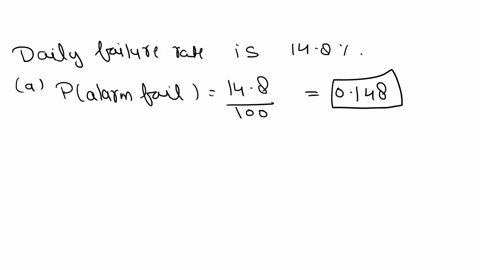 Daily failure rate is 14.8%.
(a) P(alarm fail) = 14.8/100 = 0.148